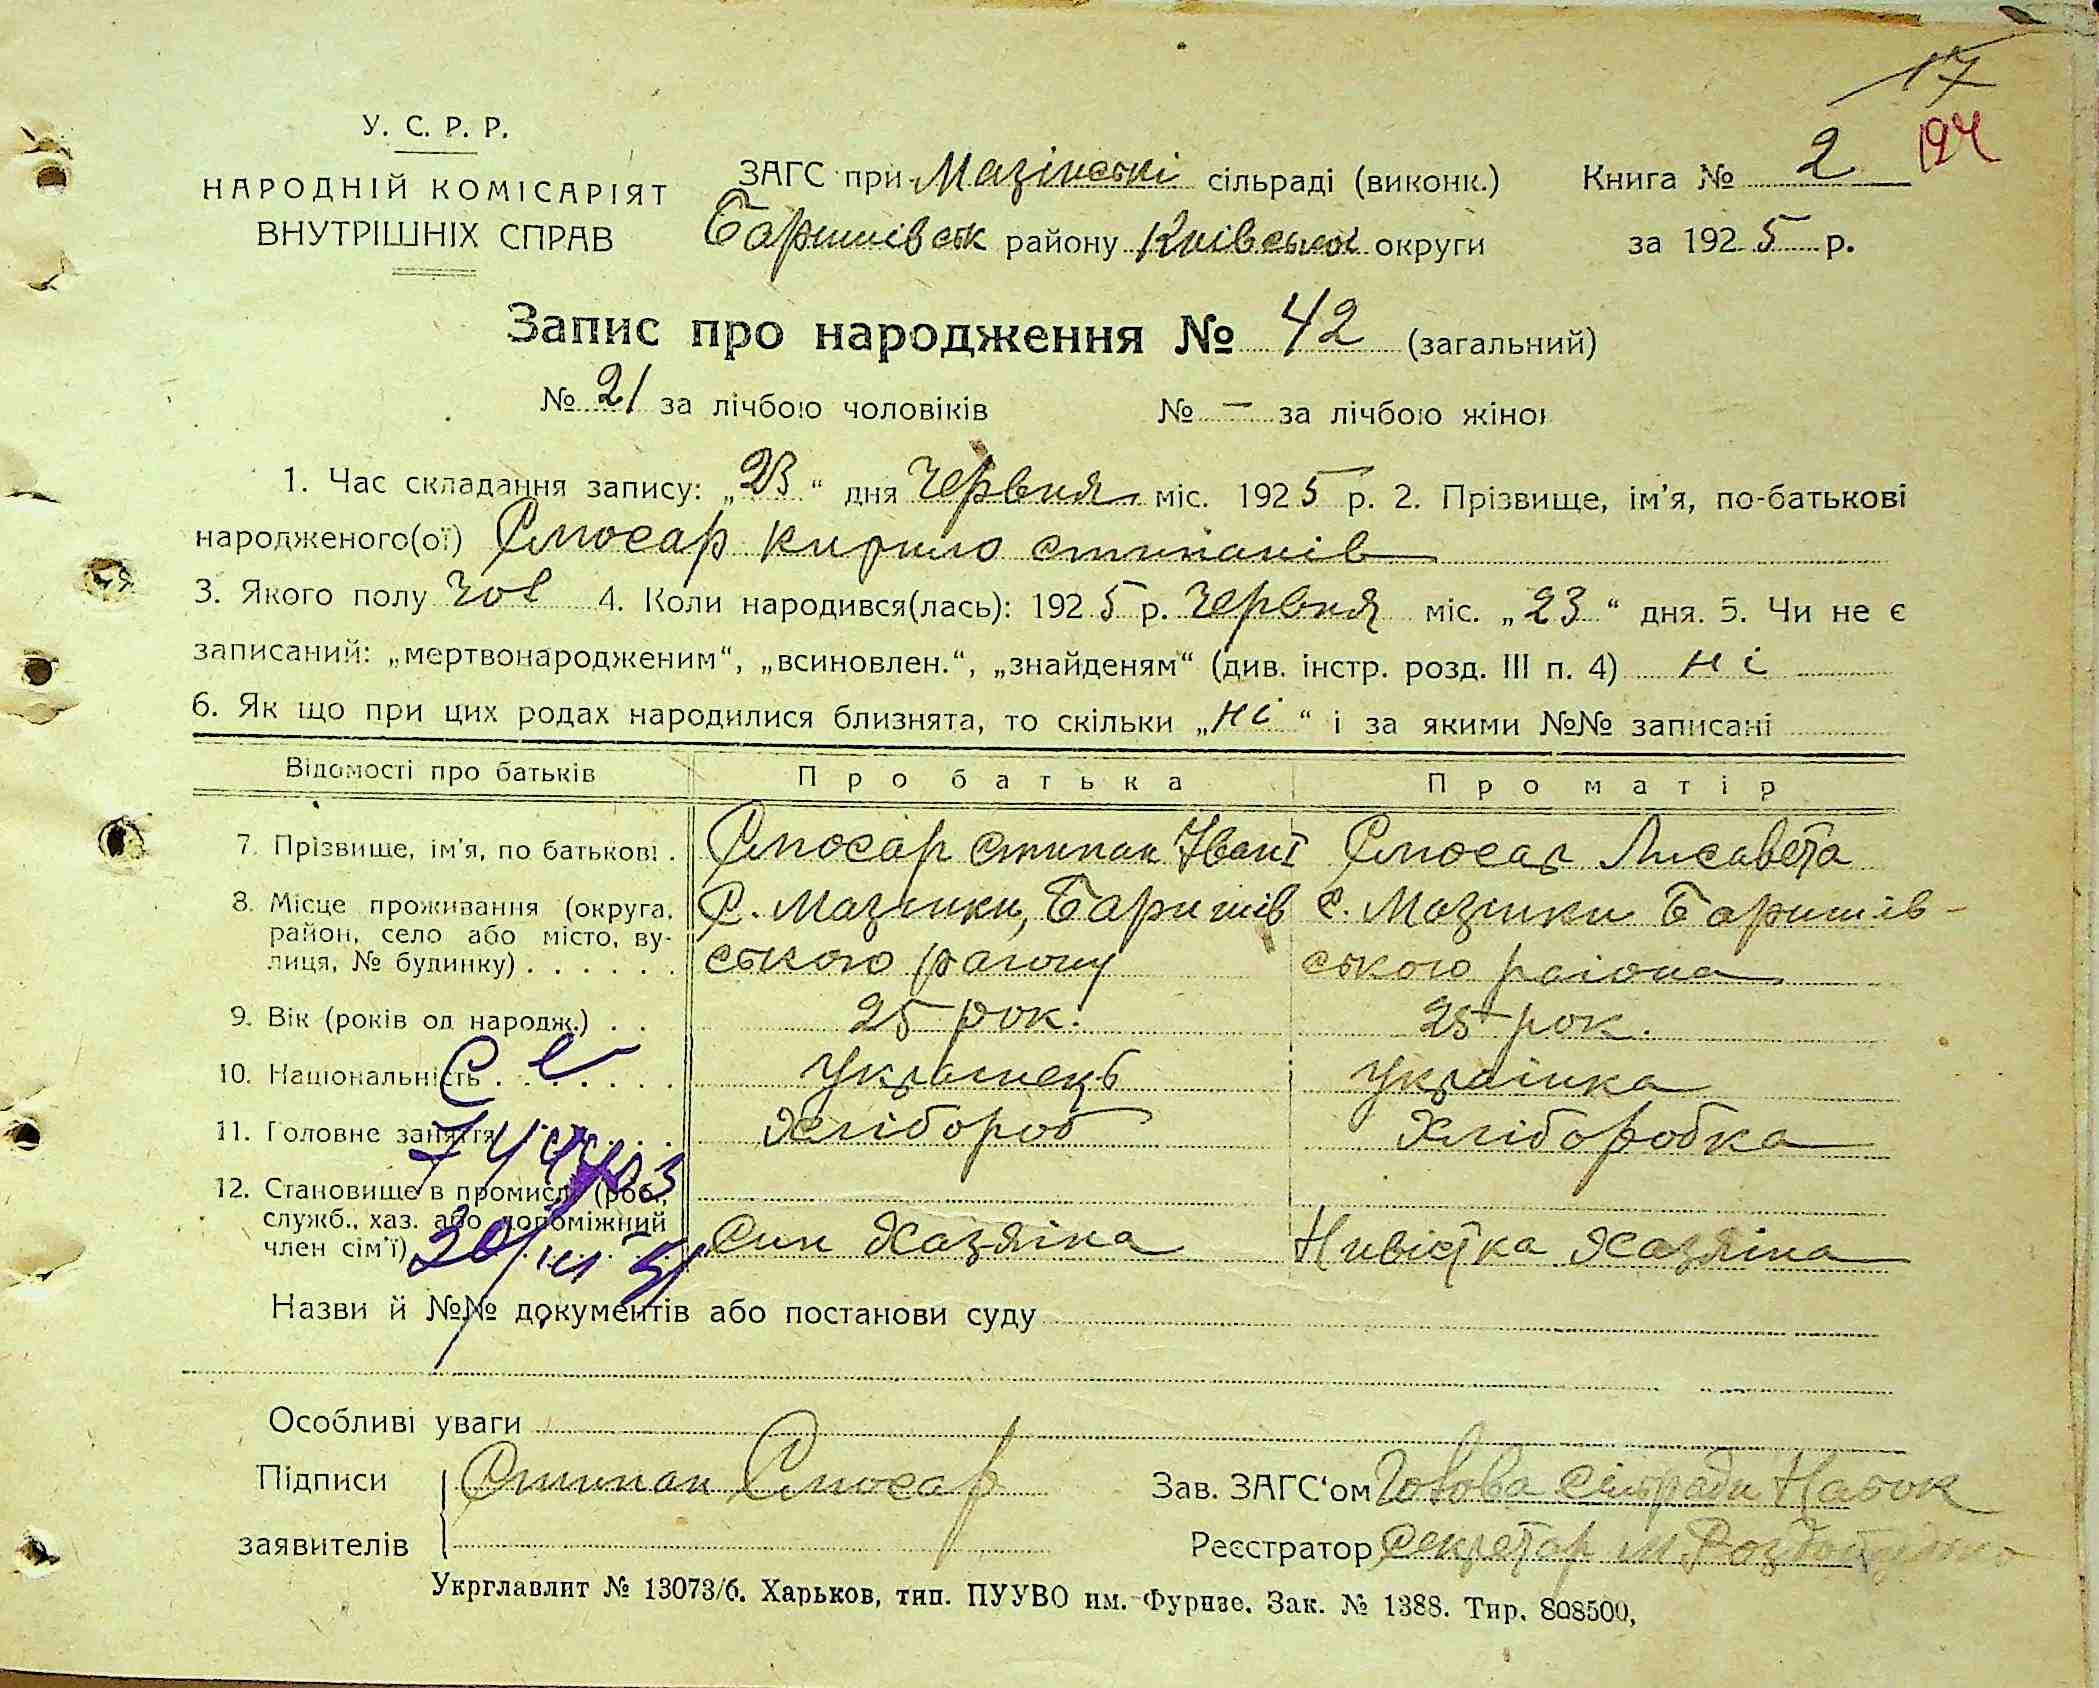 17
194
У. С. Р. Р.
НАРОДНІЙ КОМІСАРІЯТ
ВНУТРІШНІХ СПРАВ
ЗАГС при Мазінські сільраді (виконк.) Книга № 2
Баришівськ району Київської округи за 1925 р.
Запис про народження № 42 (загальний)
№ 21 за лічбою чоловіків № — за лічбою жіно
1. Час складання запису: „23“ дня Червня міс. 1925 р. 2. Прізвище, ім'я, по-батькові
народженого(ої) Слюсар Кирило Стипанів
3. Якого полу Чов 4. Коли народився(лась): 1925 р. Червня міс. „23“ дня. 5. Чи не є
записаний: „мертвонародженим“, „всиновлен.“, „знайденям“ (див. інстр. розд. III п. 4) ні
6. Як що при цих родах народилися близнята, то скільки „ні“ і за якими №№ записані
Відомості про батьків Про батька Про матір
7. Прізвище, ім'я, по батькові. Слюсар Стипан Івані Слюсар Лисавета
8. Місце проживання (округа, С. Мазінки, Баришів с. Мазінки Баришів-
район, село або місто, ву-
лиця, № будинку) ського району ського раіона
9. Вік (років од народж.) 25 рок. 25 рок.
10. Національність Украінець Украінка
11. Головне заняття Хлібороб Хліборобка
12. Становище в промислі (роб.,
служб., хаз. або допоміжний
член сім'ї) Син Хазяіна Нивістка Хазяіна
Назви й №№ документів або постанови суду
Особливі уваги
Підписи Стипан Слюсар Зав. ЗАГС'ом Голова Сільради
заявителів Реєстратор Секретар
Укрглавлит № 13073/б. Харьков, тип. ПУУВО им. Фрунзе. Зак. № 1388. Тир. 808500,